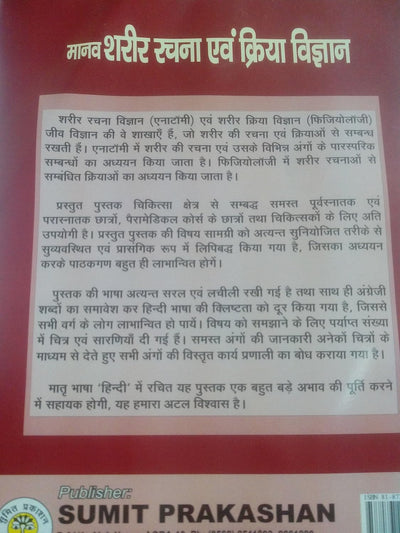 मानव शरीर रचना एवं क्रिया विज्ञान
शरीर रचना विज्ञान (एनाटॉमी) एवं शरीर क्रिया विज्ञान (फिजियोलॉजी)
जीव विज्ञान की वे शाखाएँ हैं, जो शरीर की रचना एवं क्रियाओं से सम्बन्ध
रखती हैं। एनाटॉमी में शरीर की रचना एवं उसके विभिन्न अंगों के पारस्परिक
सम्बन्धों का अध्ययन किया जाता है। फिजियोलॉजी में शरीर रचनाओं से
सम्बंधित क्रियाओं का अध्ययन किया जाता है।
प्रस्तुत पुस्तक चिकित्सा क्षेत्र से सम्बद्ध समस्त पूर्वस्नातक एवं
परास्नातक छात्रों, पैरामेडिकल कोर्स के छात्रों तथा चिकित्सकों के लिए अति
उपयोगी है। प्रस्तुत पुस्तक की विषय सामग्री को अत्यन्त सुनियोजित तरीके से
सुव्यवस्थित एवं प्रासंगिक रूप में लिपिबद्ध किया गया है, जिसका अध्ययन
करके पाठकगण बहुत ही लाभान्वित होगें।
पुस्तक की भाषा अत्यन्त सरल एवं लचीली रखी गई है तथा साथ ही अंग्रेजी
शब्दों का समावेश कर हिन्दी भाषा की क्लिष्टता को दूर किया गया है, जिससे
सभी वर्ग के लोग लाभान्वित हो पायें। विषय को समझाने के लिए पर्याप्त संख्या
में चित्र एवं सारणियाँ दी गई हैं। समस्त अंगों की जानकारी अनेकों चित्रों के
माध्यम से देते हुए सभी अंगों की विस्तृत कार्य प्रणाली का बोध कराया गया है।
मातृ भाषा 'हिन्दी' में रचित यह पुस्तक एक बहुत बड़े अभाव की पूर्ति करने
में सहायक होगी, यह हमारा अटल विश्वास है।
सुमित प्रकाशन
Publisher:
SUMIT PRAKASHAN
ISBN 81-